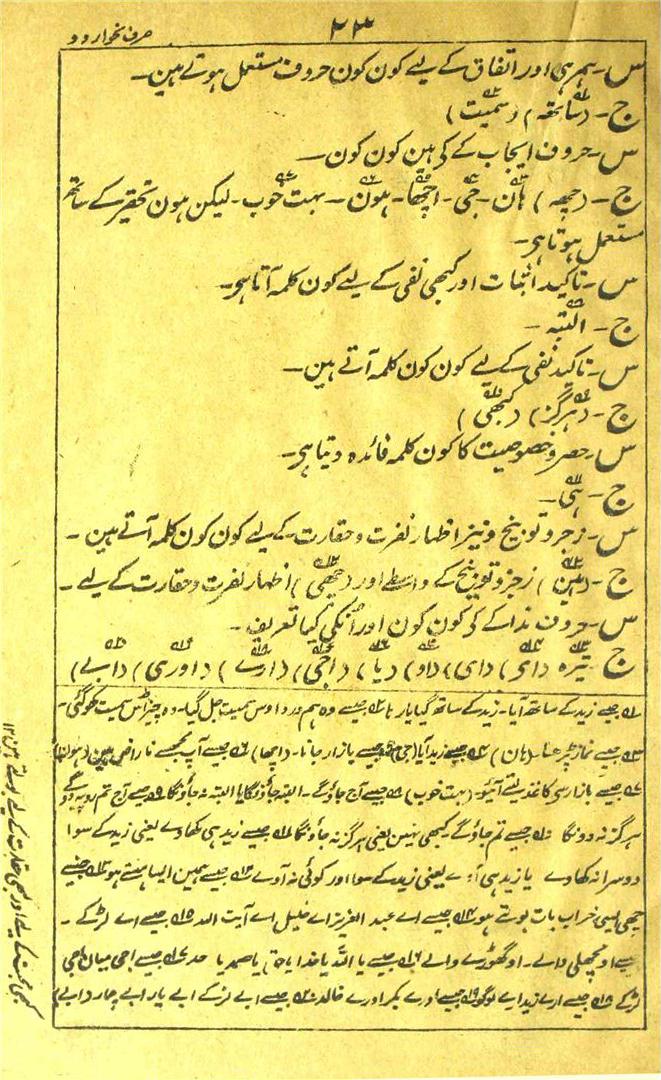 ۲۳
صرف نحو اردو
س۔ ہمرہی اور اتفاق کے لیے کون کون حروف مستعمل ہوتے ہین۔
ج۔ (ساتھہ) (سمیت)
س۔ حروف ایجاب کے کی ہین کون کون۔
ج۔ (چھہ) ہان۔ جی۔ اچھا۔ ہون۔ بہت خوب۔ لیکن ہون تحقیر کے ساتھ
مستعمل ہوتا ہی۔
س۔ تاکید اثبات اور کبھی نفی کے لیے کون کلمہ آتا ہی۔
ج۔ البتہ۔
س۔ تاکید نفی کے لیے کون کون کلمہ آتے ہین۔
ج۔ (ہرگز) (کبھی)
س۔ حصر و خصوصیت کا کون کلمہ فائدہ دیتا ہی۔
ج۔ ہی۔
س۔ زجر و توبیخ و نیز اظہار نفرت و حقارت کے لیے کون کون کلمہ آتے ہین۔
ج۔ (ہین) زجر و توبیخ کے واسطے اور (چھی) اظہار نفرت و حقارت کے لیے۔
س۔ حروف ندا کے کی کون کون اور انکی کیا تعریف۔
ج۔ تیرہ (ای) (ای) (او) (یا) (اجی) (ارے) (اوری) (ابے)
جیسے زید کے ساتھ آیا۔ زید کے ساتھ گیا یارہا جیسے وہ ہم سمیت جل گیا۔ وہ چیز اس سمیت کھو گئی۔
جیسے نماز پڑھنا۔ (ہان) جیسے زید آیا (جی) جیسے بازار جانا۔ (اچھا) جیسے آپ مجھسے ناراض ہین (ہون)
جیسے بازار سے کاغذ لیتے آئیو۔ (بہت خوب) جیسے آج جاؤگے۔ البتہ جاؤنگا یا البتہ نہ جاؤنگا جیسے آج تم روپیہ دوگے
ہرگز نہ دونگا جیسے تم جاؤگے کبھی نہین یعنی ہرگز نہ جاؤنگا جیسے زید ہی کھاوے یعنی زید کے سوا
دوسرا نہ کھاوے یا زید ہی آوے یعنی زید کے سوا اور کوئی نہ آوے جیسے ہین ایسا ہنستے ہو جیسے
چھی ایسی خراب بات بولتے ہو جیسے اے عبد العزیز اے خلیل اے آیت اللہ جیسے اے لڑکے۔
جیسے او مچھلی والے۔ او گھوڑے والے جیسے یا اللہ یا خدا یا حق یا صمد یا جیسے اجی میان اجی
لڑکے جیسے ارے زید ارے لوگو جیسے اورے بکر اورے خالد جیسے ابے لڑکے ابے یار ابے چمار (ابے)
کبھی کے لیے اور کبھی حقارت کے لیے بولتے ہین ۱۲